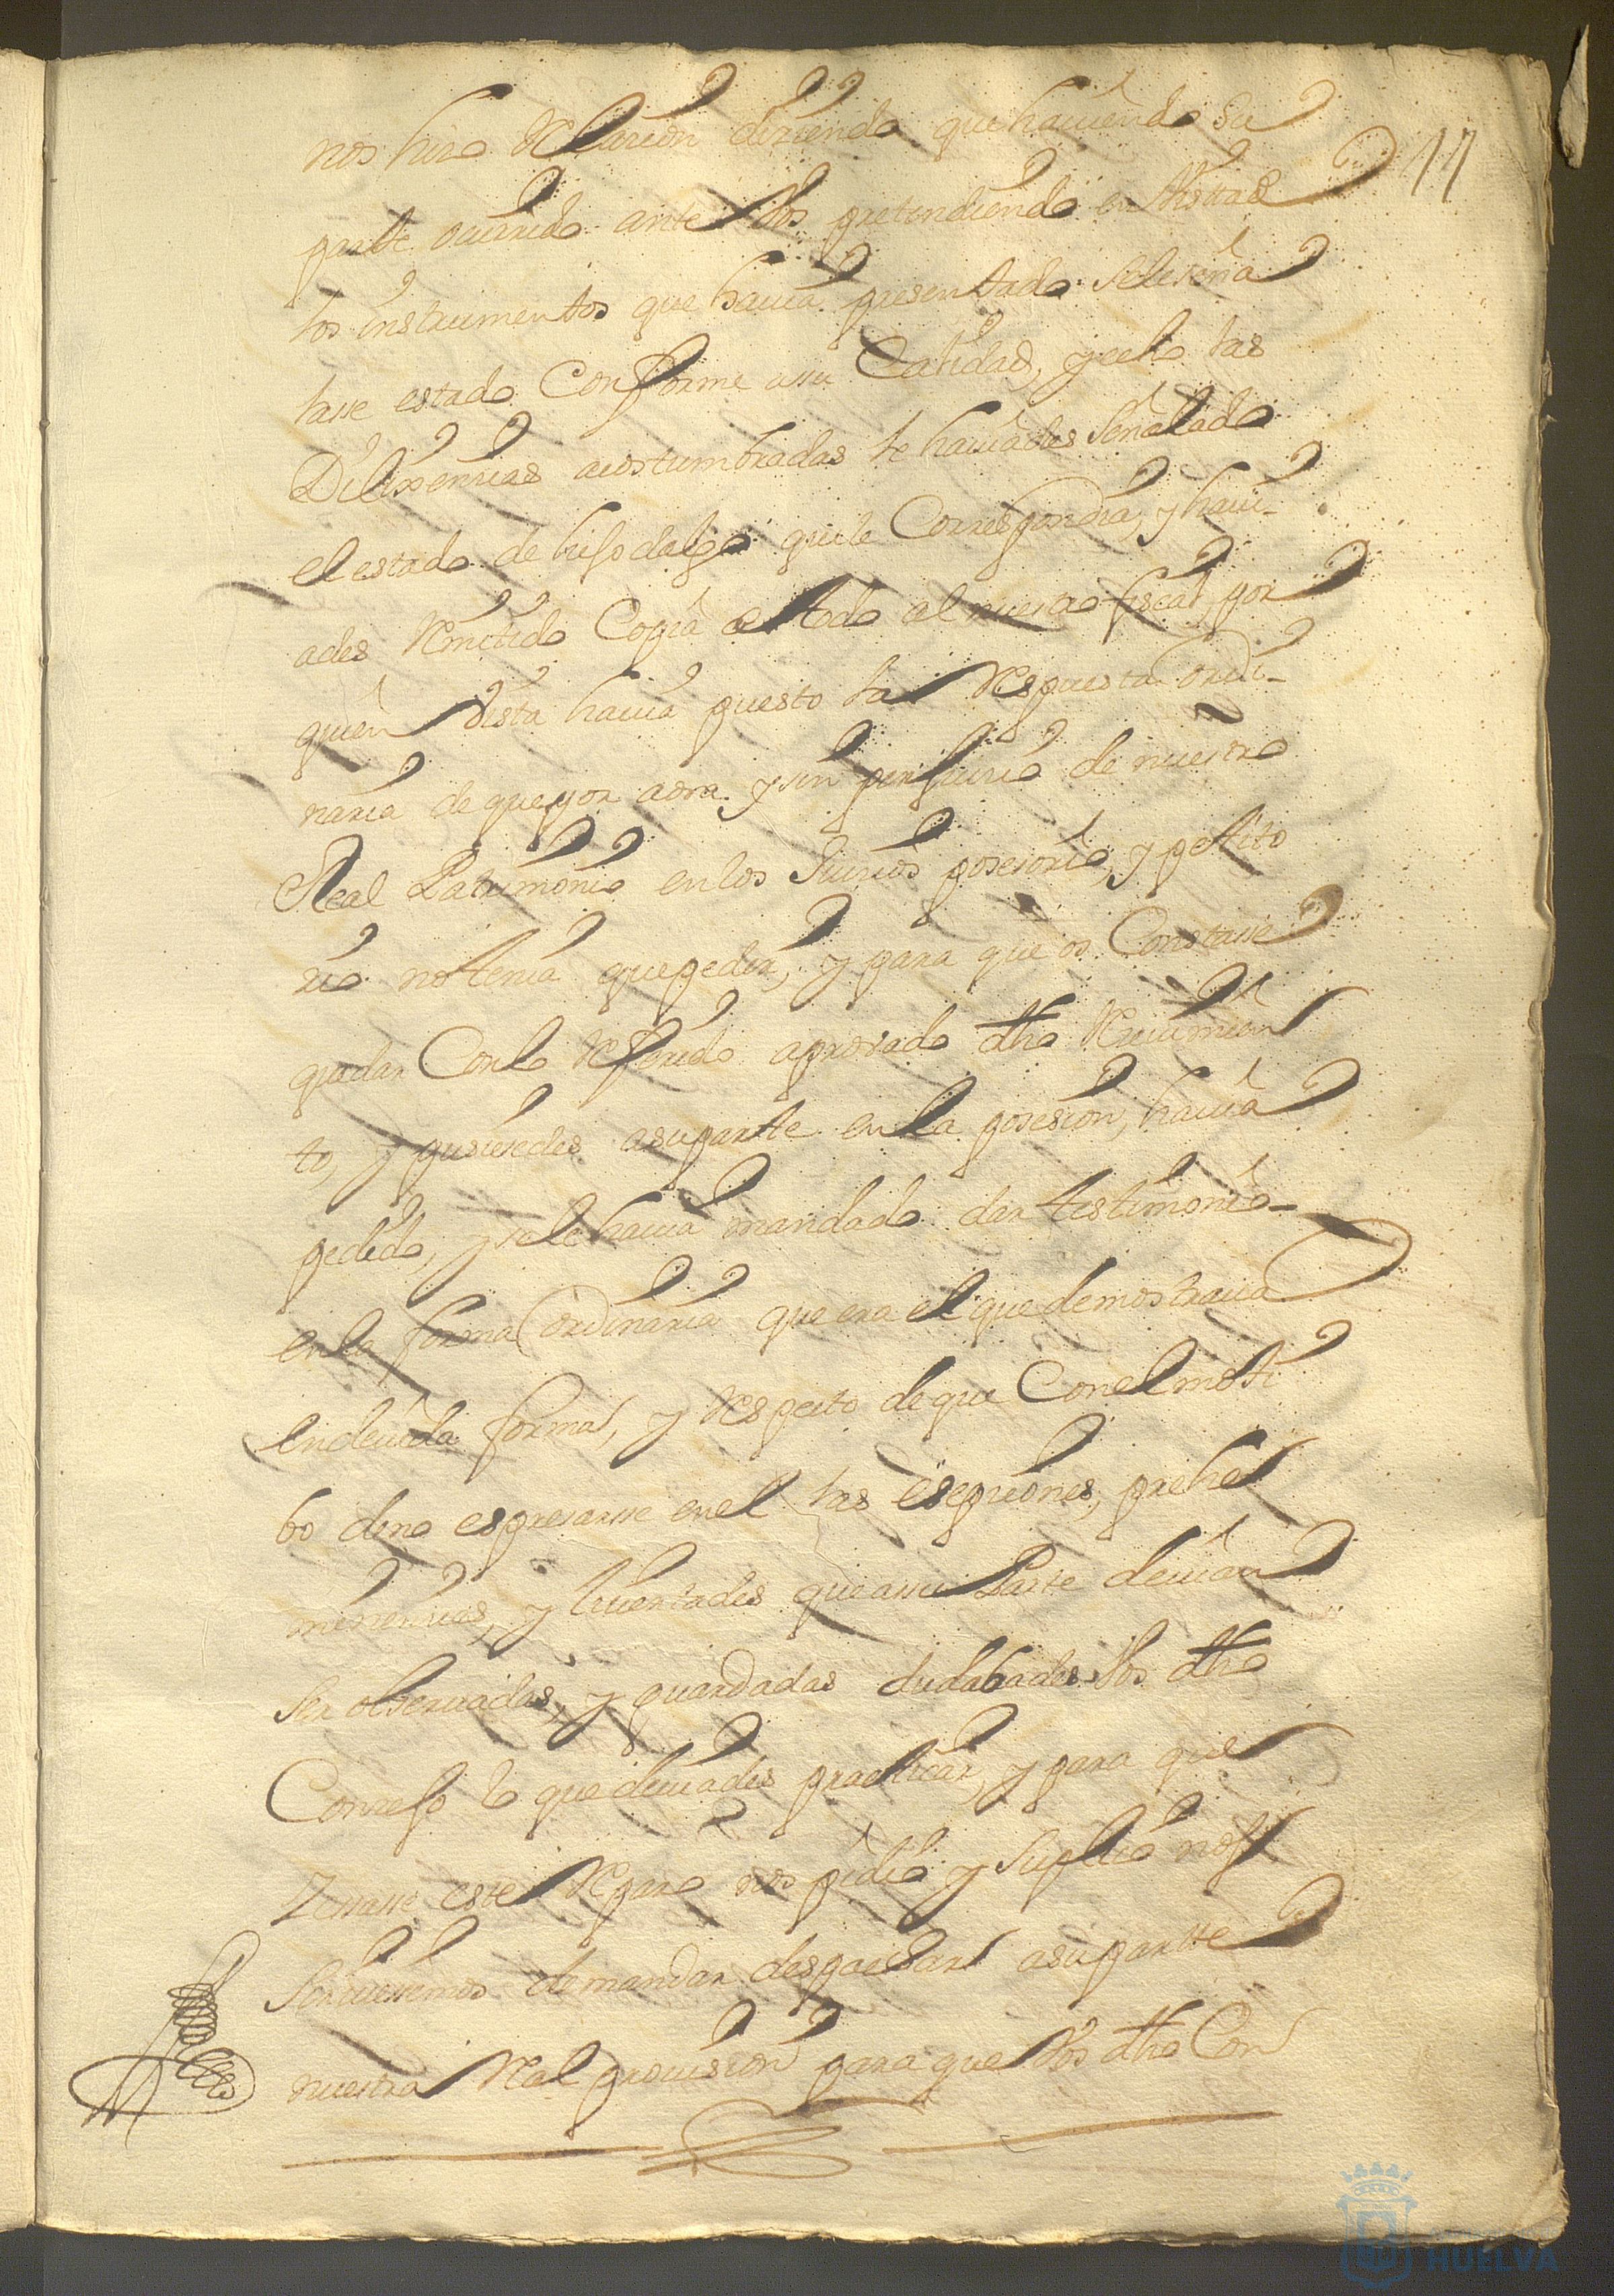 nos hizo Relacion diziendo que haviendo su
17
parte ocurrido ante Vos pretendiendo en Vistta de
los instrumentos que havia presentado se le seña
lasse estado Conforme a su Calidad, y echo las
Dilixencias acostumbradas le haviades señalado
el estado de hijodalgo que le Correspondia, y havi-
ades Remitido Copia de todo al nuestro fiscal, por
quien vista havia puesto la Respuesta ordi-
naria de que por aora y sin perjuicio de nuestro
Real Patrimonio en los Juicios posesorio, y petito
rio no tenia que pedir, y para que os Constasse
quedar Con lo Referido aprovado dho Recivimien
to, y pusiesedes a su partte en la posesion, havia
pedido, y se le havia mandado dar testimonio
en la forma ordinaria que era el que demostrava
en devida forma, y Respecto de que Con el moti
bo de no espresarse en el las esepciones, prehe
minencias, y livertades que a su Parte devian
ser observadas, y guardadas dudabades Vos dho
Consejo lo que deviades practicar, y para que
Zesasse este Reparo nos pidio y suplico nos
sirviessemos de mandar despachar a su partte
nuestra Real provision para que Vos dho Con
HUELVA